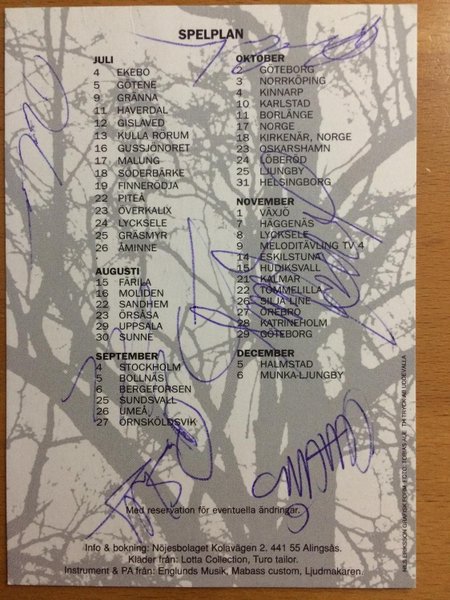 SPELPLAN
JULI
4 EKEBO
5 GÖTENE
9 GRÄNNA
11 HAVERDAL
12 GISLAVED
13 KULLA RÖRUM
16 GUSSJÖNORET
17 MALUNG
18 SÖDERBÄRKE
19 FINNERÖDJA
22 PITEÅ
23 ÖVERKALIX
24 LYCKSELE
25 GRÄSMYR
26 ÅMINNE
AUGUSTI
15 FÄRILA
16 MOLIDEN
22 SANDHEM
23 ÖRSÅSA
29 UPPSALA
30 SUNNE
SEPTEMBER
4 STOCKHOLM
5 BOLLNÄS
6 BERGEFORSEN
25 SUNDSVALL
26 UMEÅ
27 ÖRNSKÖLDSVIK
OKTOBER
2 GÖTEBORG
3 NORRKÖPING
4 KINNARP
10 KARLSTAD
11 BORLÄNGE
17 NORGE
18 KIRKENÄR, NORGE
23 OSKARSHAMN
24 LÖBERÖD
25 LJUNGBY
31 HELSINGBORG
NOVEMBER
1 VÄXJÖ
7 HÄGGENÅS
8 LYCKSELE
9 MELODITÄVLING TV 4
14 ESKILSTUNA
15 HUDIKSVALL
21 KALMAR
22 TOMMELILLA
26 SILJA LINE
27 ÖREBRO
28 KATRINEHOLM
29 GÖTEBORG
DECEMBER
5 HALMSTAD
6 MUNKA-LJUNGBY
Med reservation för eventuella ändringar.
Info & bokning: Nöjesbolaget Kolavägen 2. 441 55 Alingsås.
Kläder från: Lotta Collection, Turo tailor.
Instrument & PA från: Englunds Musik, Mabass custom, Ljudmakaren.